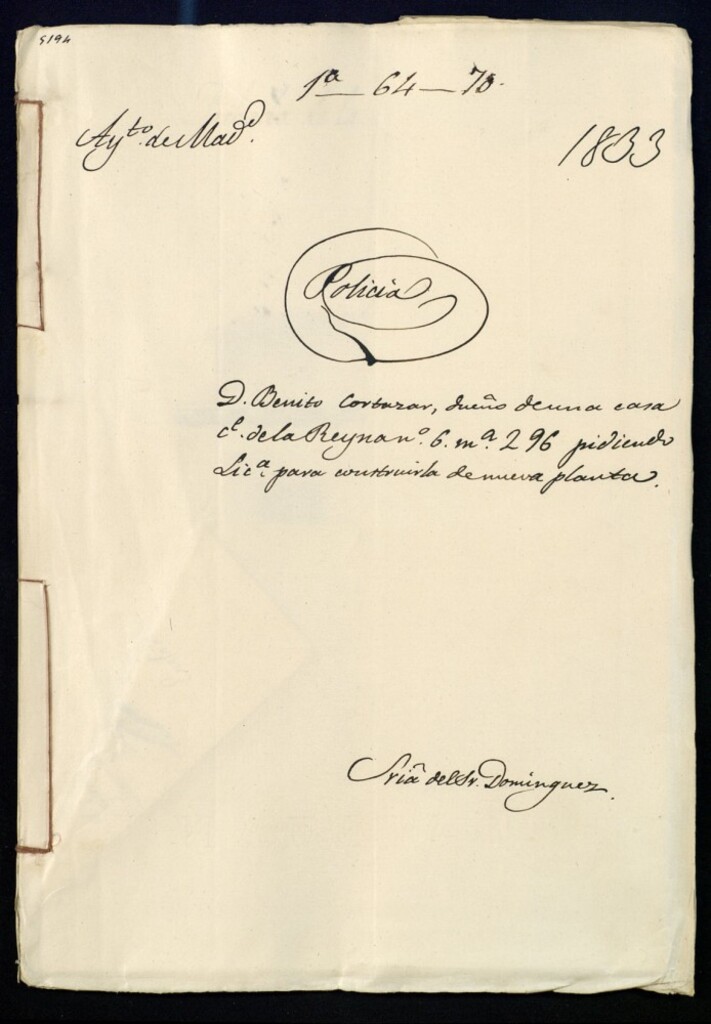 5194
1ª — 64 — 70.
Ayto. de Madd.
1833
Policía
D. Benito Cortazar, dueño de una casa
ce. de la Reyna nº. 6. mª. 296 pidiendo
Lica. para construirla de nueva planta.
Sría del Sr. Dominguez.